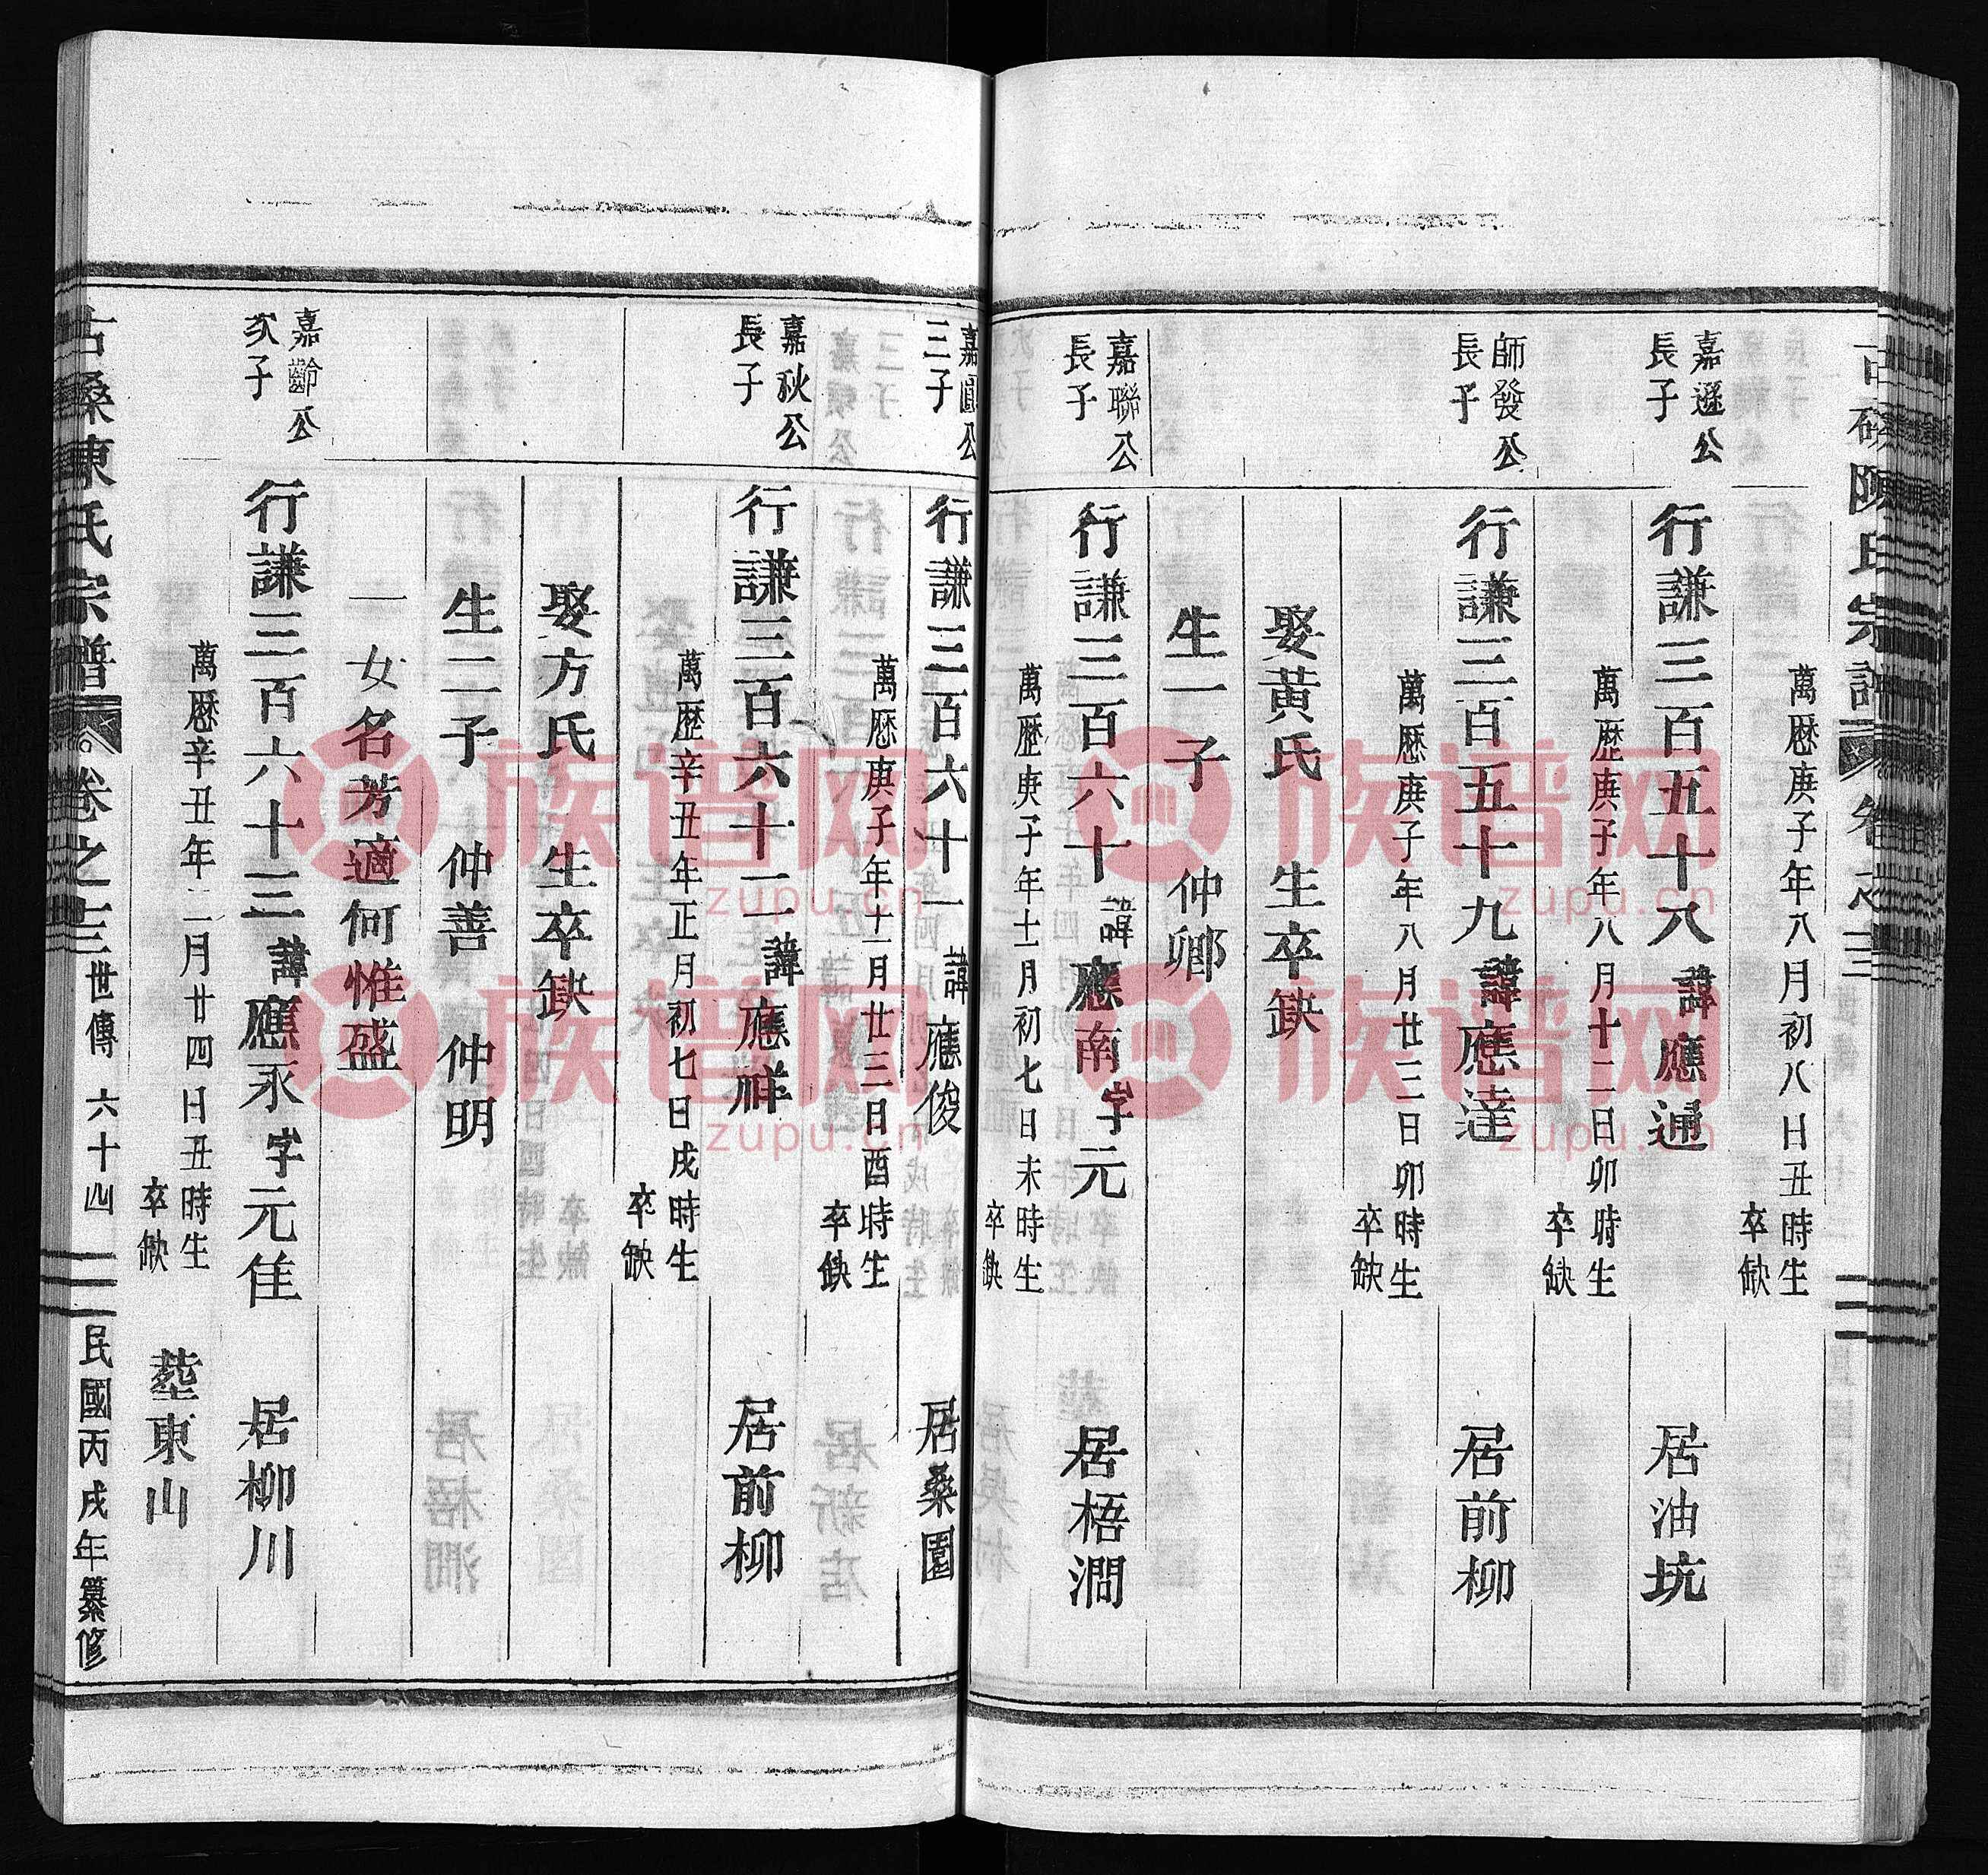 萬厯庚子年八月初八日丑時生
卒缺
嘉遜公
長子
行謙三百五十八諱應通
居油坑
萬歷庚子年八月十二日卯時生
卒缺
師發公
長子
行謙三百五十九諱應達
居前柳
萬厯庚子年八月廿三日卯時生
卒缺
娶黃氏 生卒缺
生一子 仲卿
嘉聯公
長子
行謙三百六十諱應南字元
居梧澗
萬歷庚子年十一月初七日未時生
卒缺
嘉圓公
三子
行謙三百六十一諱應俊
居桑園
萬厯庚子年十一月廿三日酉時生
卒缺
嘉秋公
長子
行謙三百六十二諱應祥
居前柳
萬歷辛丑年正月初七日戌時生
卒缺
娶方氏 生卒缺
生二子 仲善 仲明
一女名芳適何惟盛
嘉齡公
次子
行謙三百六十三諱應永字元隹
居柳川
萬厯辛丑年二月廿四日丑時生
卒缺
塟東山
陳氏宗譜 卷之三 世傳 六十四 民國丙戌年纂修
族谱网
zupu.cn
族谱网
zupu.cn
族谱网
zupu.cn
族谱网
zupu.cn